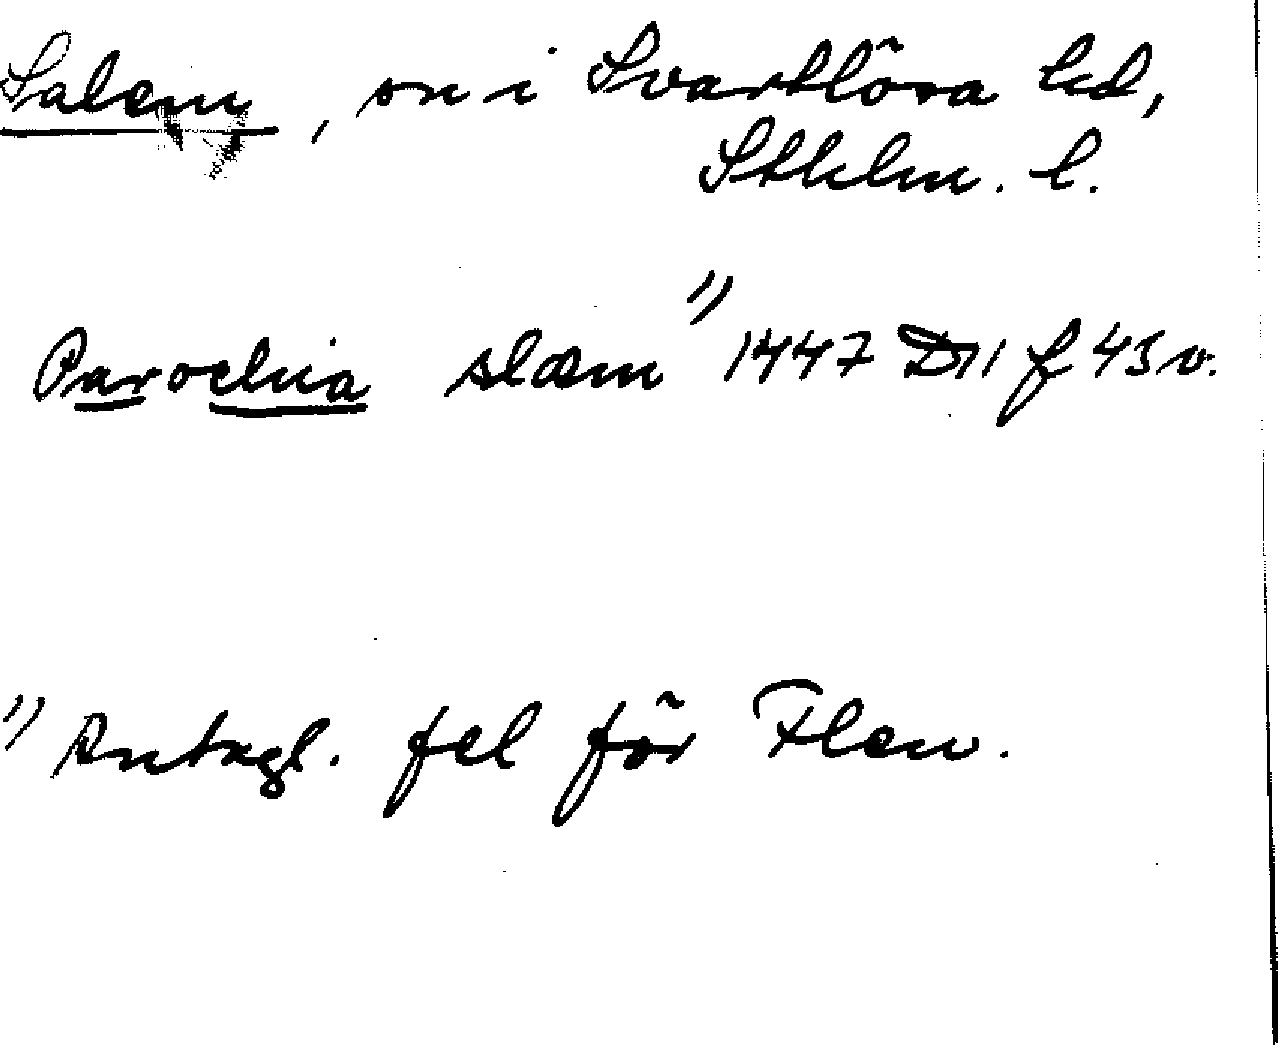 Salem, sn i Svartlösa hd,
Sthlm. l.
Parochia slæm ¹⁾ 1447 D11 f 43 v.
¹⁾ Antagl. fel för Flen.